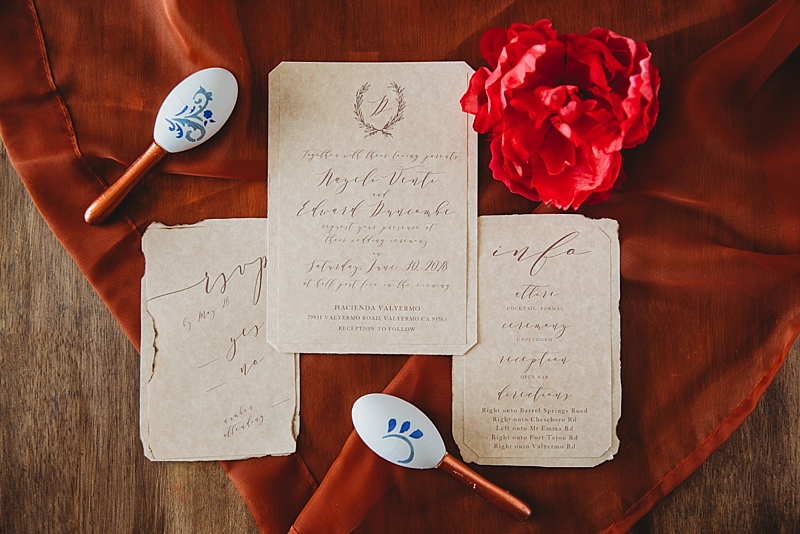 D
Together with their loving parents
Nayeli Venti
and
Edward Duncombe
request your presence at
their wedding ceremony
on
Saturday, June 30, 2018
at half past five in the evening
HACIENDA VALYERMO
VALYERMO ROAD, VALYERMO CA 93563
RECEPTION TO FOLLOW
rsvp
by May 16
yes
no
number
attending
info
attire
COCKTAIL FORMAL
ceremony
UNPLUGGED
reception
OPEN BAR
directions
Right onto Barrel Springs Road
Right onto Cheseboro Rd
Left onto Mt Emma Rd
Right onto Fort Tejon Rd
Right onto Valyermo Rd